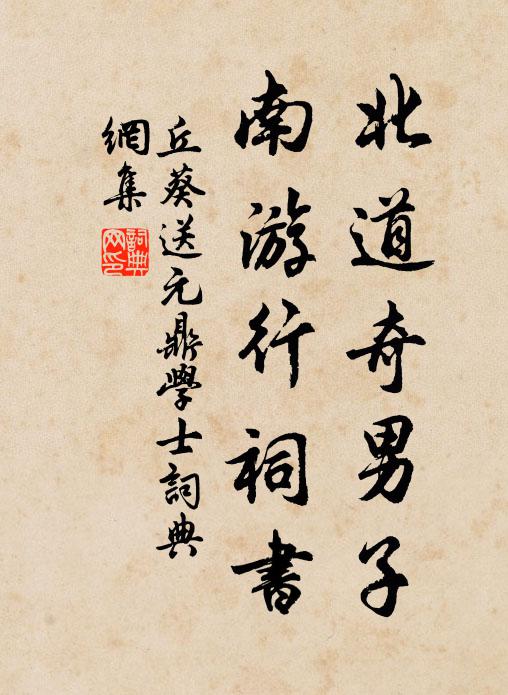 北道奇男子
南游行祠書
丘葵送元鼎學士詞典
網集
詞典網印